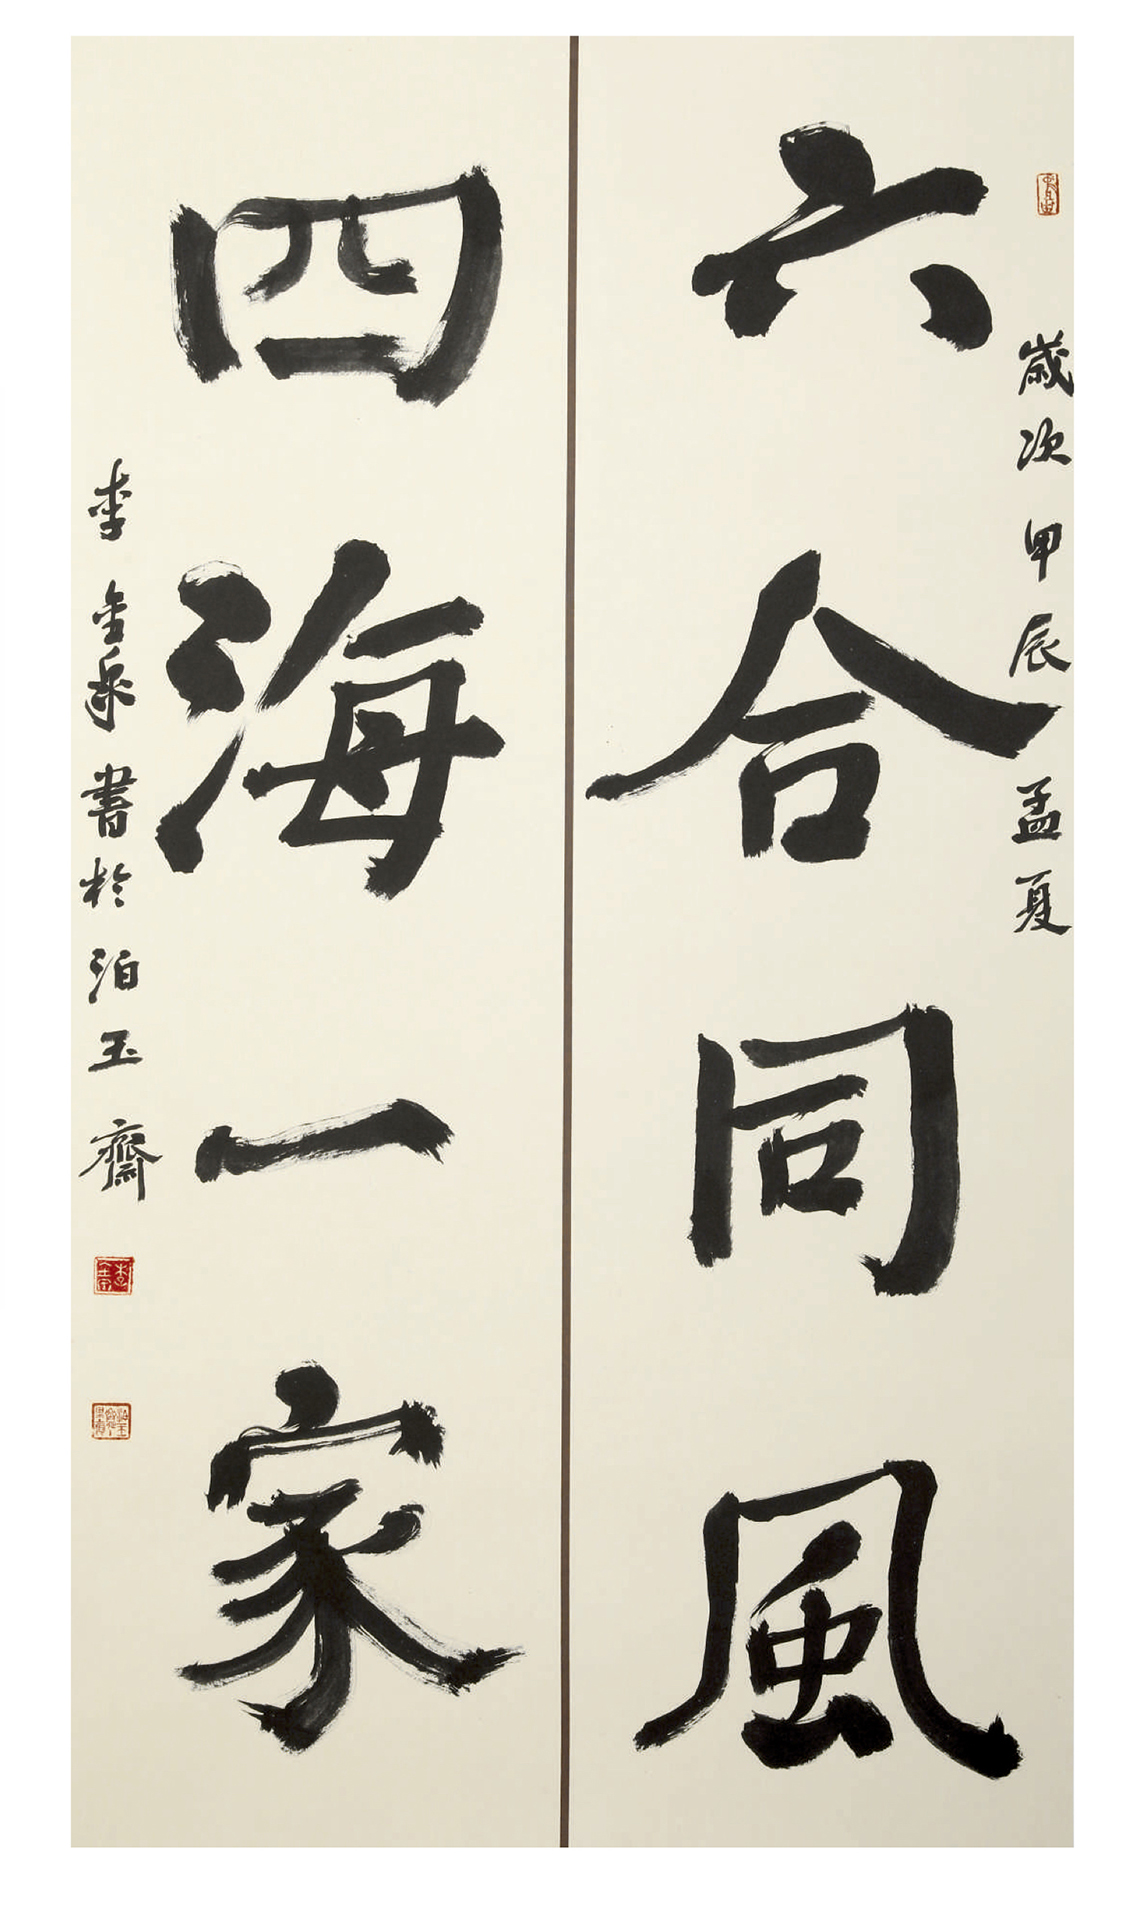 歲次甲辰孟夏
六合同風
四海一家
李金泉書於泊玉齋